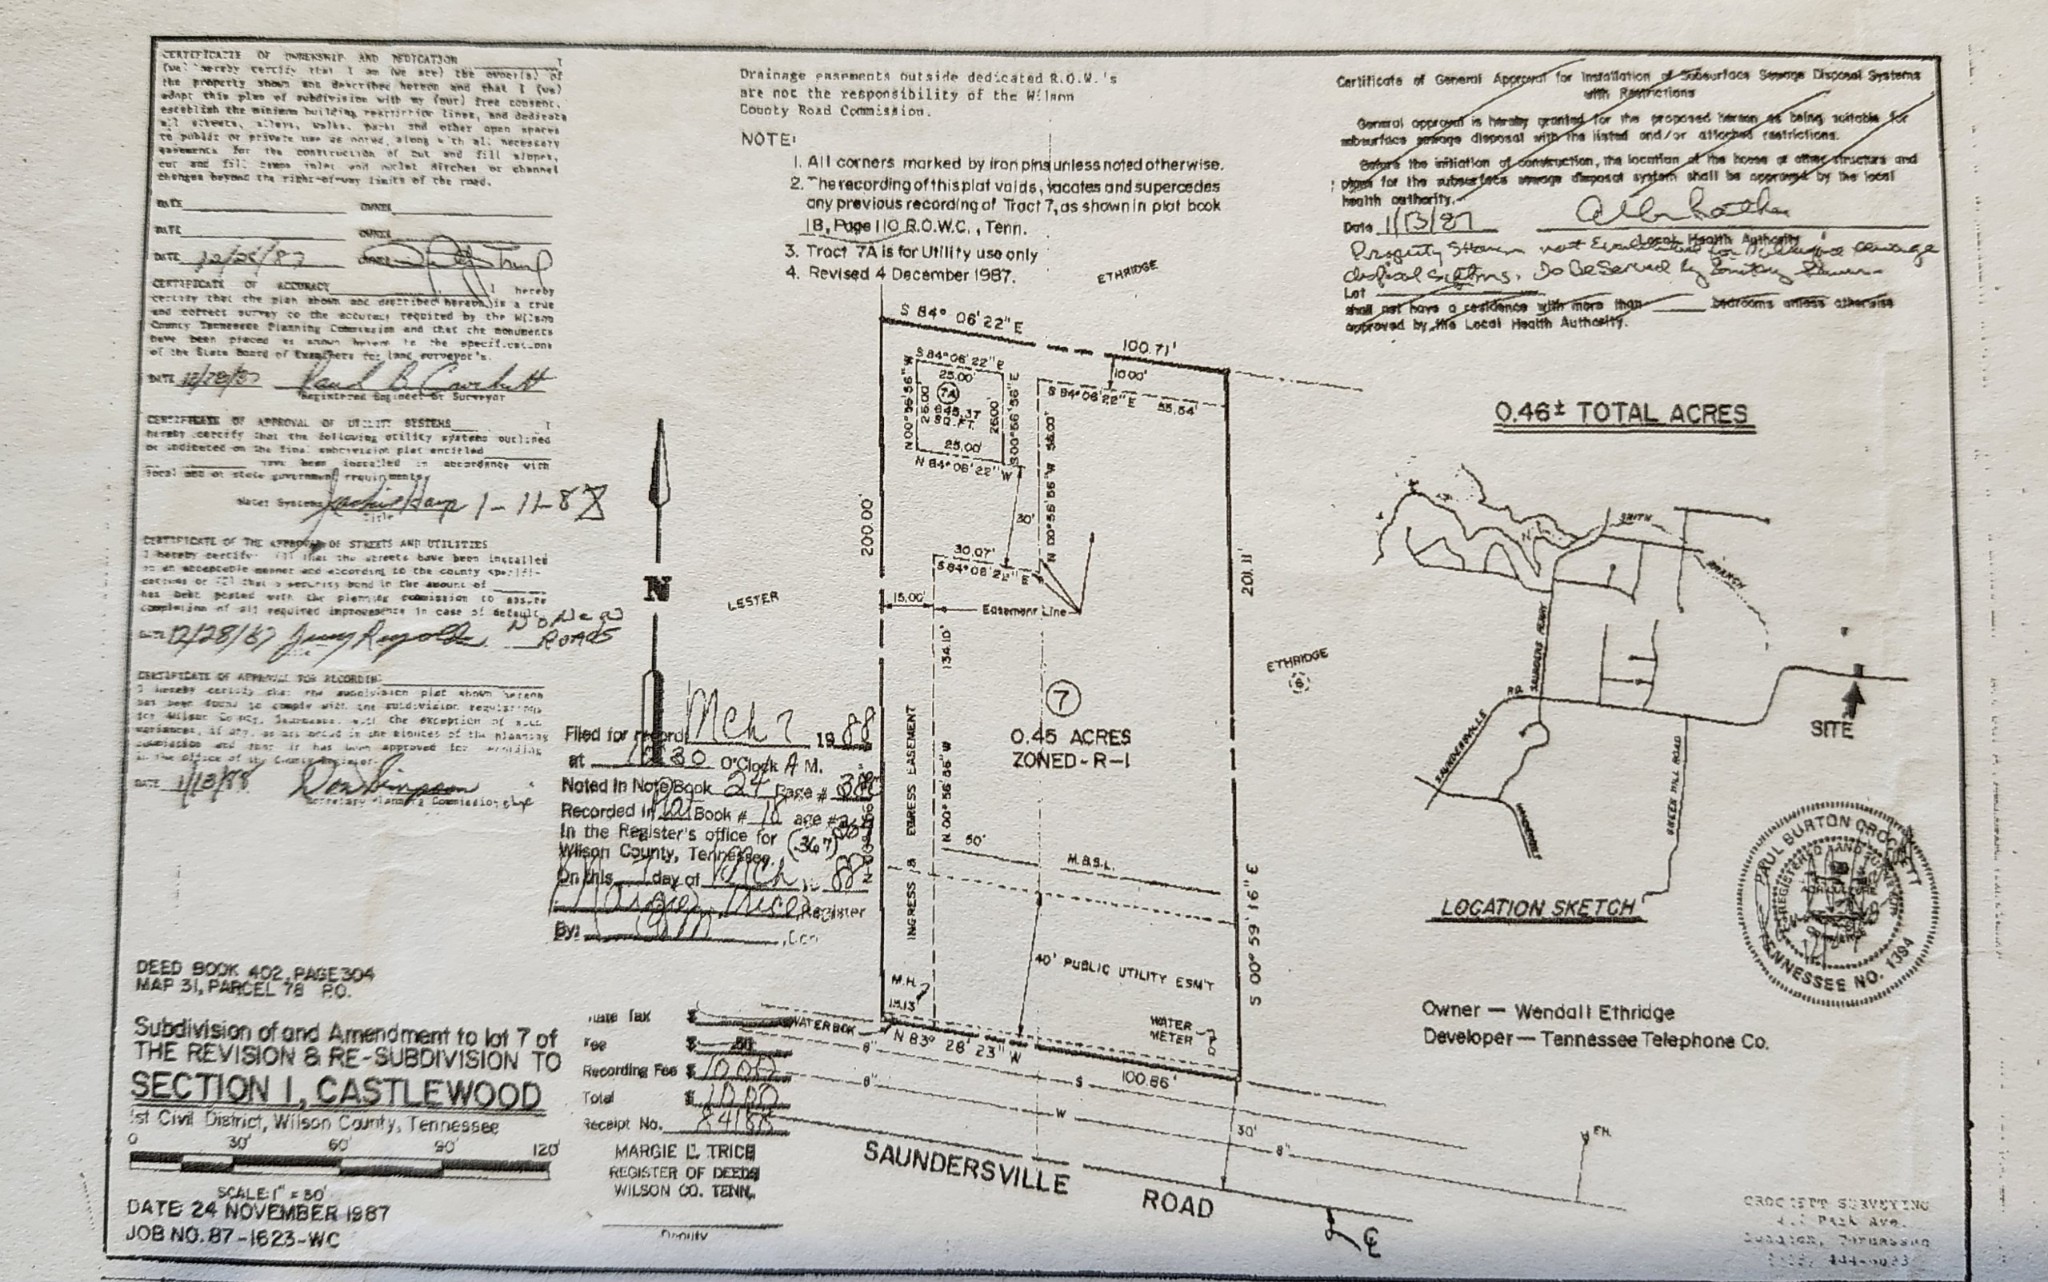 CERTIFICATE OF OWNERSHIP AND DEDICATION
I (we) hereby certify that I am (we are) the owner(s) of
the property shown and described hereon and that I (we)
adopt this plan of subdivision with my (our) free consent,
establish the minimum building restriction lines, and dedicate
all streets, alleys, walks, parks and other open spaces
to public or private use as noted, along with all necessary
easements for the construction of cut and fill slopes,
cut and fill ditches or channel
changes beyond the right-of-way limits of the road.
DATE OWNER
DATE OWNER
DATE 12/28/87
CERTIFICATE OF ACCURACY
I hereby
certify that the plan shown and described hereon is a true
and correct survey to the accuracy required by the Wilson
County Tennessee Planning Commission and that the monuments
have been placed as shown hereon to the specifications
of the State Board of Examiners for land surveyor's.
DATE 12/28/87 Paul B. Crockett
Registered Engineer or Surveyor
CERTIFICATE OF APPROVAL OF UTILITY SYSTEMS
I
hereby certify that the following utility systems outlined
or indicated on the final subdivision plat entitled
have been installed in accordance with
local and or state government requirements
Water Systems 1-11-88
Title
CERTIFICATE OF THE APPROVAL OF STREETS AND UTILITIES
I hereby certify: (1) that the streets have been installed
in an acceptable manner and according to the county specifi-
cations or (2) that a security bond in the amount of
has been posted with the planning commission to assure
completion of all required improvements in case of default.
NO NEW
ROADS
DATE 12/28/87 Jerry Reynolds
CERTIFICATE OF APPROVAL FOR RECORDING
I hereby certify that the subdivision plat shown hereon
has been found to comply with the subdivision regulations
for Wilson County, Tennessee with the exception of such
variances, if any, as are noted in the minutes of the planning
commission and that it has been approved for recording
in the office of the County Register.
DATE 1/13/88 Don Simpson
Secretary Planning Commission
DEED BOOK 402, PAGE 304
MAP 31, PARCEL 78 P.O.
Subdivision of and Amendment to lot 7 of
THE REVISION & RE-SUBDIVISION TO
SECTION I, CASTLEWOOD
1st Civil District, Wilson County, Tennessee
0 30' 60' 90' 120'
SCALE: 1" = 30'
DATE: 24 NOVEMBER 1987
JOB NO. 87-1623-WC
Drainage easements outside dedicated R.O.W.'s
are not the responsibility of the Wilson
County Road Commission.
NOTE:
1. All corners marked by iron pins unless noted otherwise.
2. The recording of this plat voids, vacates and supercedes
any previous recording of Tract 7, as shown in plat book
18, Page 110 R.O.W.C., Tenn.
3. Tract 7A is for Utility use only
4. Revised 4 December 1987.
N
Filed for record Mch 7 1988
at 10:30 O'Clock A M.
Noted In Note Book 24 Page #
Recorded in Plat Book # 18 age #
In the Register's office for
Wilson County, Tennessee. (367)
On this 7 day of Mch, 88
Margie Trice, Register
By:
State Tax $
Fee $ .50
Recording Fee $ 10.00
Total $ 10.00
Receipt No. 84188
MARGIE L. TRICE
REGISTER OF DEEDS
WILSON CO. TENN.
Deputy
ETHRIDGE
S 84° 06' 22" E
100.71'
S 84° 06' 22" E
25.00'
N 00° 56' 56" W
25.00'
7A
645.37
SQ. FT.
S 00° 56' 56" E
25.00'
N 84° 06' 22" W
10.00'
S 84° 06' 22" E 55.54'
N 00° 56' 56" W 56.00'
30'
30.07'
S 84° 06' 22" E
200.00'
LESTER
15.00'
Easement Line
134.10'
201.11'
ETHRIDGE
6
7
0.45 ACRES
ZONED-R-1
INGRESS & EGRESS EASEMENT
N 00° 56' 56" W
50'
M.B.S.L.
S 00° 59' 16" E
40' PUBLIC UTILITY ESM'T
M.H.
15.13'
WATER BOX
WATER
METER
N 83° 28' 23" W
100.86'
8" S
6" W
30' 8"
F.H.
SAUNDERSVILLE ROAD
℄
Certificate of General Approval for Installation of Subsurface Sewage Disposal Systems
with Restrictions
General approval is hereby granted for the proposed hereon as being suitable for
subsurface sewage disposal with the listed and/or attached restrictions.
Before the initiation of construction, the location of the house or other structure and
plans for the subsurface sewage disposal system shall be approved by the local
health authority.
Date 1/13/87
Local Health Authority
Property Shown not Evaluated for subsurface sewage
disposal systems. To Be Served by Sanitary Sewer
Lot
shall not have a residence with more than bedrooms unless otherwise
approved by the Local Health Authority.
0.46± TOTAL ACRES
SMITH
BRANCH
SAUNDERS FERRY
RD.
SAUNDERSVILLE
GREEN HILL ROAD
SITE
LOCATION SKETCH
PAUL BURTON CROCKETT
REGISTERED LAND SURVEYOR
AGRICULTURE
COMMERCE
TENNESSEE NO. 1394
Owner — Wendall Ethridge
Developer — Tennessee Telephone Co.
CROCKETT SURVEYING
Park Ave.
Tennessee